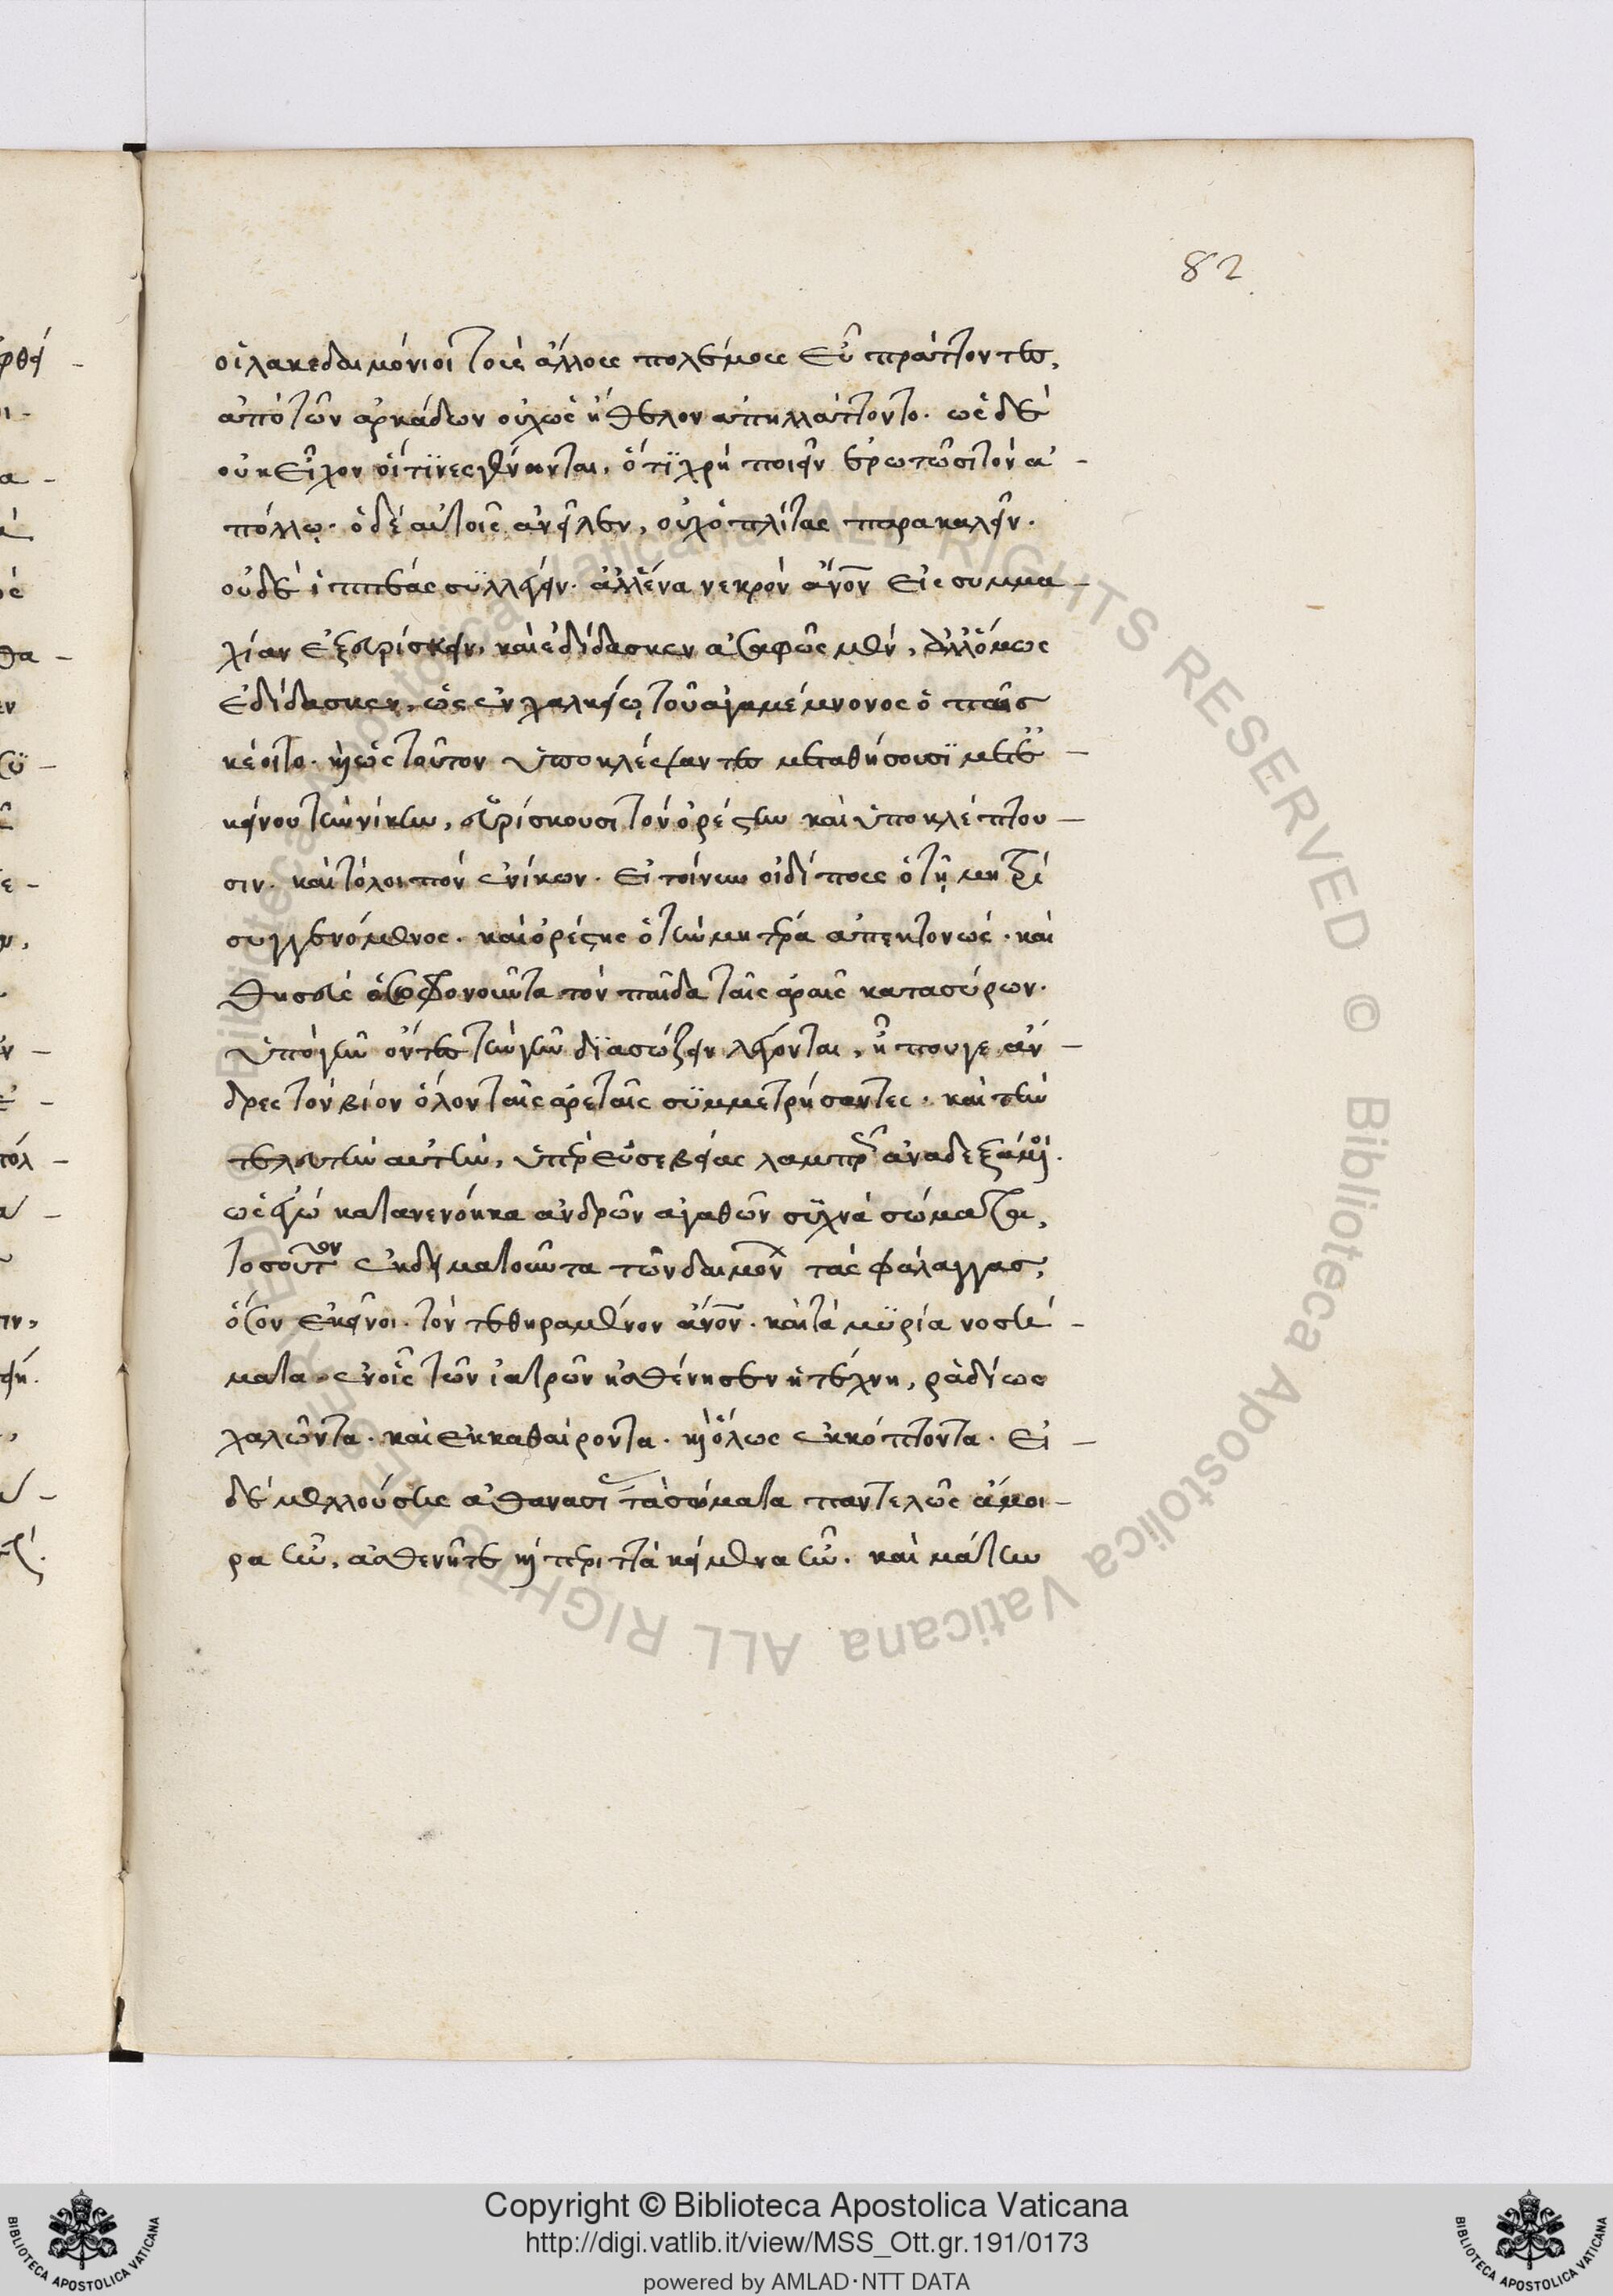 82
οἱ λακεδαιμόνιοι τοῖς ἄλλοις πολέμοις εὖ πράττοντες,
ἀπὸ τῶν ἀρκάδων οὐχ ὡς ἤθελον ἀπηλλάττοντο. ὡς δὲ
οὐκ εἶχον οἵτινες γένωνται, ὅτι χρὴ ποιεῖν ἐρωτῶσι τὸν ἀ-
πόλλω. ὁ δὲ αὐτοῖς ἀνεῖλεν, οὐχ ὁπλίτας παρακαλεῖν.
οὐδὲ ἱππέας συλλέγειν. ἀλλ' ἕνα νεκρὸν ἄνον εἰς συμμα-
χίαν ἐξευρίσκειν. καὶ ἐδίδασκεν ἀσαφῶς μὲν, ἀλλ' ὅμως
ἐδίδασκεν, ὡς ἐν χαλκείῳ τοῦ ἀγαμέμνονος ὁ παῖς
κέοιτο. καὶ ὡς τοῦτον ὑποκλέψαντες μεταθήσουσι μετ' ἐ-
κείνου τὴν νίκην, εὑρίσκουσι τὸν ὀρέστην καὶ ὑποκλέπτου-
σιν. καὶ τὸ λοιπὸν ἐνίκων. εἰ τοίνυν οἰδίπους ὁ τῇ μητρὶ
συγγενόμενος. καὶ ὀρέστης ὁ τὴν μητέρα ἀπεκτονώς. καὶ
θησεὺς ὁ σωφρονοῦντα τὸν παῖδα ταῖς ἀραῖς κατασύρων.
ὑπὸ γῆν ὄντες τὴν γῆν διασώζειν λέγονται, ἦ που γε ἄν-
δρες τὸν βίον ὅλον ταῖς ἀρεταῖς συμμετρήσαντες. καὶ τὴν
τελευτὴν αὐτὴν, ὑπὲρ εὐσεβείας λαμπρῶς ἀναδεξάμενοι.
ὡς ἐγὼ κατανενόηκα ἀνδρῶν ἀγαθῶν συχνὰ σώματα,
τοσοῦτον ἐκδειματοῦντα τῶν δαιμόνων τὰς φάλαγγας,
ὅσον ἐκεῖνοι. τὸν τεθηραμένον ἄνον. καὶ τὰ μυρία νοσή-
ματα. ἐν οἷς τῶν ἰατρῶν ἠσθένησεν ἡ τέχνη, ῥαδίως
χαλῶντα. καὶ ἐκκαθαίροντα. καὶ ὅλως ἐκκόπτοντα. εἰ
δὲ μελλούσης ἀθανασίας τὰ σώματα παντελῶς ἄμοι-
ρα ἦν, ἀσθενῆ τε καὶ περιττὰ κείμενα ἦν. καὶ μάτην
Copyright © Biblioteca Apostolica Vaticana
http://digi.vatlib.it/view/MSS_Ott.gr.191/0173
powered by AMLAD·NTT DATA